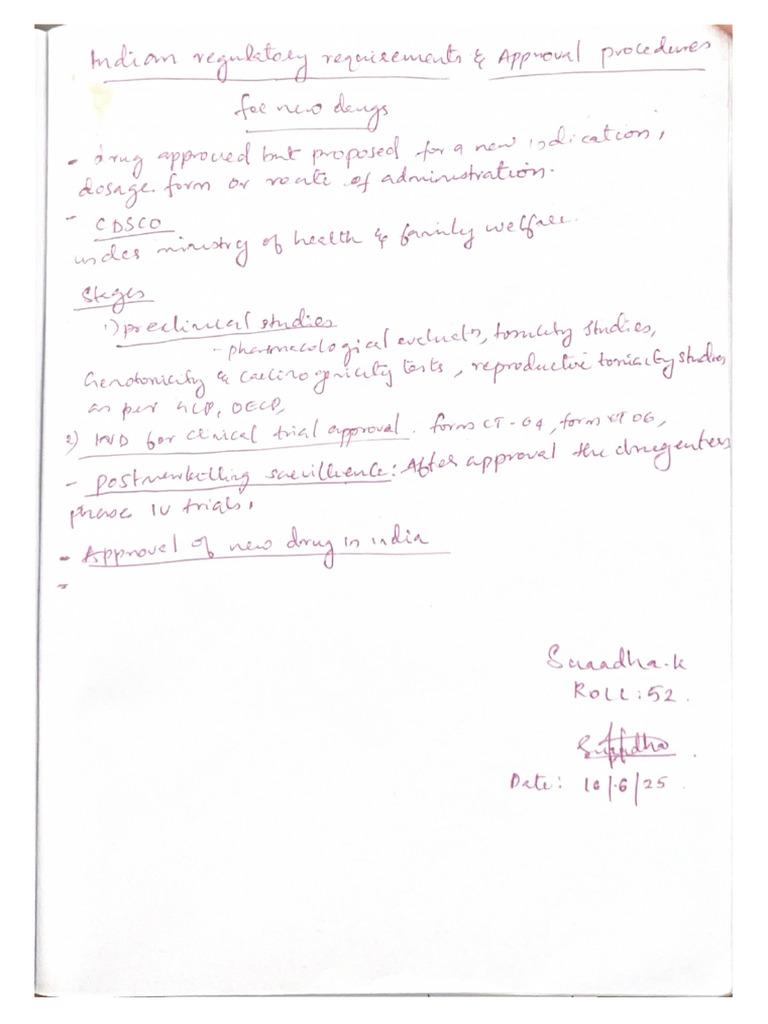 Indian regulatory requirements & Approval procedures
for new drugs
- drug approved but proposed for a new indication,
dosage form or route of administration.
- CDSCO
under ministry of health & family welfare.
Stages
1) preclinical studies
- pharmacological evaluats, toxicity studies,
Genotoxicity & carcinogenicity tests, reproductive toxicity studies
as per GLP, OECD,
2) IND for clinical trial approval. form CT-04, form CT 06,
- Postmarketting survillence: After approval the drug enters
phase IV trials,
- Approvel of new drug in india
-
K
Roll: 52.
Date: 10/6/25